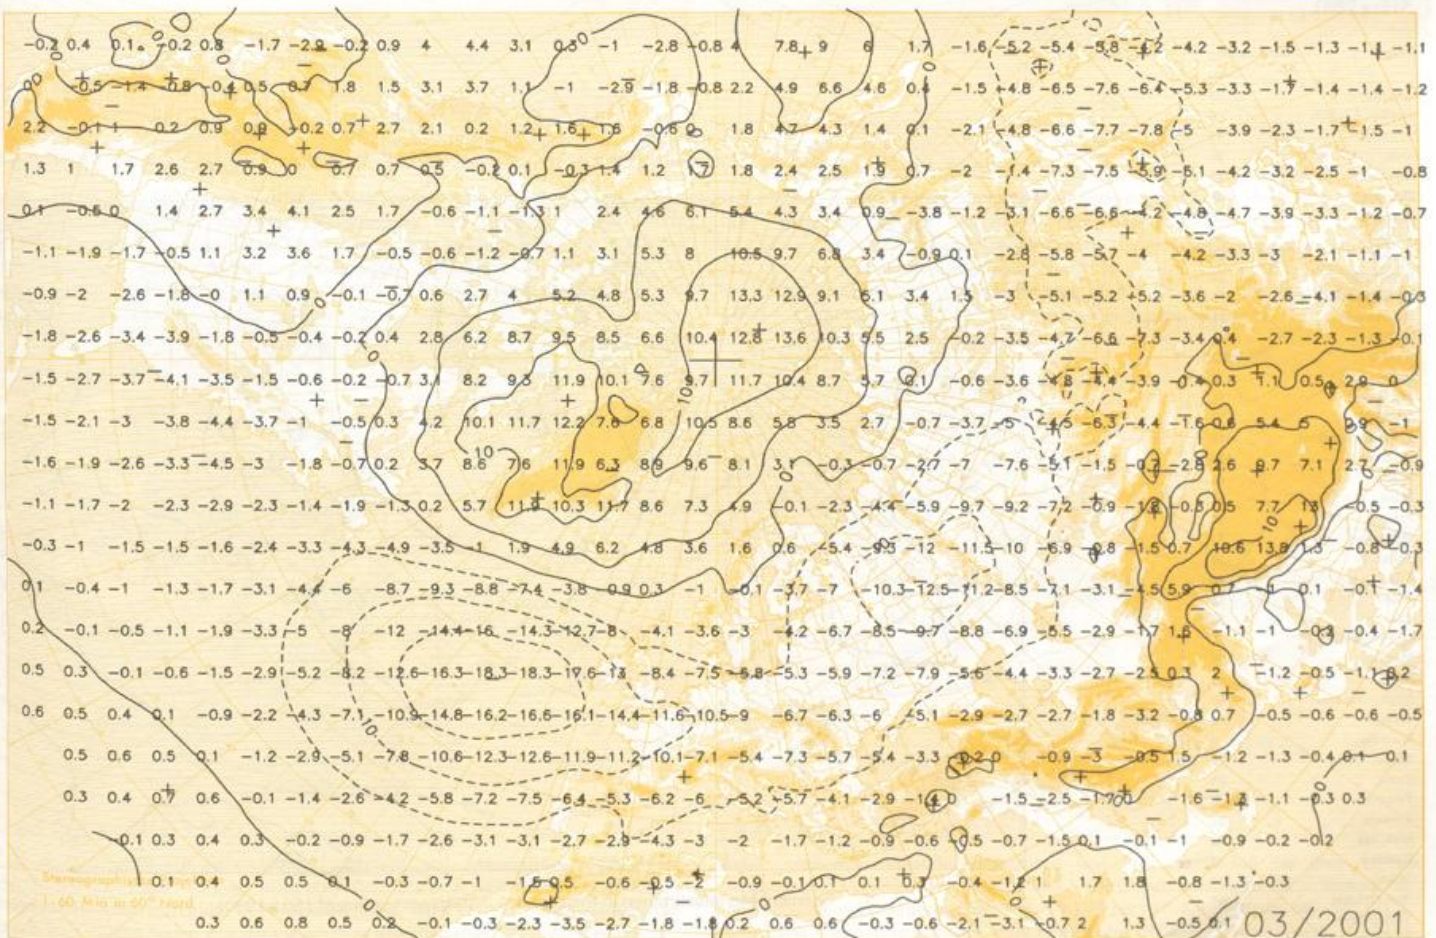 -0.2 0.4 0.1 -0.2 0.8 -1.7 -2.9 -0.2 0.9 4 4.4 3.1 0.3 -1 -2.8 -0.8 4 7.8 9 6 1.7 -1.6 -5.2 -5.4 -5.8 -4.2 -4.2 -3.2 -1.5 -1.3 -1.1 -1.1
-0.5 -1.4 -0.8 -0.4 0.5 0.7 1.8 1.5 3.1 3.7 1.1 -1 -2.9 -1.8 -0.8 2.2 4.9 6.6 4.6 0.4 -1.5 -4.8 -6.5 -7.6 -6.4 -5.3 -3.3 -1.7 -1.4 -1.4 -1.2
2.2 -0.1 1 0.2 0.9 0.9 -0.2 0.7 2.7 2.1 0.2 1.2 1.6 1.6 -0.6 0 1.8 4.7 4.3 1.4 0.1 -2.1 -4.8 -6.6 -7.7 -7.8 -5 -3.9 -2.3 -1.7 -1.5 -1
1.3 1 1.7 2.6 2.7 0.9 0 0.7 0.7 0.5 -0.2 0.1 -0.3 1.4 1.2 1.7 1.8 2.4 2.5 1.9 0.7 -2 -1.4 -7.3 -7.5 -5.9 -5.1 -4.2 -3.2 -2.5 -1 -0.8
0.1 -0.6 0 1.4 2.7 3.4 4.1 2.5 1.7 -0.6 -1.1 -1.3 1 2.4 4.6 6.1 5.4 4.3 3.4 0.9 -3.8 -1.2 -3.1 -6.6 -6.6 -4.2 -4.8 -4.7 -3.9 -3.3 -1.2 -0.7
-1.1 -1.9 -1.7 -0.5 1.1 3.2 3.6 1.7 -0.5 -0.6 -1.2 -0.7 1.1 3.1 5.3 8 10.5 9.7 6.8 3.4 -0.9 0.1 -2.8 -5.8 -5.7 -4 -4.2 -3.3 -3 -2.1 -1.1 -1
-0.9 -2 -2.6 -1.8 -0 1.1 0.9 -0.1 -0.7 0.6 2.7 4 5.2 4.8 5.3 9.7 13.3 12.9 9.1 6.1 3.4 1.5 -3 -5.1 -5.2 -5.2 -3.6 -2 -2.6 -4.1 -1.4 -0.3
-1.8 -2.6 -3.4 -3.9 -1.8 -0.5 -0.4 -0.2 0.4 2.8 6.2 8.7 9.5 8.5 6.6 10.4 12.8 13.6 10.3 5.5 2.5 -0.2 -3.5 -4.7 -6.6 -7.3 -3.4 0.4 -2.7 -2.3 -1.3 -0.1
-1.5 -2.7 -3.7 -4.1 -3.5 -1.5 -0.6 -0.2 -0.7 3.1 8.2 9.3 11.9 10.1 7.6 9.7 11.7 10.4 8.7 5.7 0.1 -0.6 -3.6 -4.8 -4.4 -3.9 -0.4 0.3 1.1 0.5 2.9 0
-1.5 -2.1 -3 -3.8 -4.4 -3.7 -1 -0.5 0.3 4.2 10.1 11.7 12.2 7.6 6.8 10.5 8.6 5.8 3.5 2.7 -0.7 -3.7 -5 -4.5 -6.3 -4.4 -1.6 0.6 5.4 5 -1
-1.6 -1.9 -2.6 -3.3 -4.5 -3 -1.8 -0.7 0.2 3.7 8.6 7.6 11.9 6.3 8.9 9.6 8.1 3.1 -0.3 -0.7 -2.7 -7 -7.6 -5.1 -1.5 -0.7 -2.8 2.6 9.7 7.1 2.7 -0.9
-1.1 -1.7 -2 -2.3 -2.9 -2.3 -1.4 -1.9 -1.3 0.2 5.7 11.9 10.3 11.7 8.6 7.3 4.9 -0.1 -2.3 -4.4 -5.9 -9.7 -9.2 -7.2 -0.9 -1.8 -0.3 0.5 7.7 13 -0.5 -0.3
-0.3 -1 -1.5 -1.5 -1.6 -2.4 -3.3 -4.3 -4.9 -3.5 -1 1.9 4.9 6.2 4.8 3.6 1.6 0.6 -5.4 -9.3 -12 -11.5 -10 -6.9 -0.8 -1.5 0.7 10.6 13.8 1.3 -0.8 -0.3
0.1 -0.4 -1 -1.3 -1.7 -3.1 -4.4 -6 -8.7 -9.3 -8.8 -7.4 -3.8 0.9 0.3 -1 -0.1 -3.7 -7 -10.3 -12.5 -11.2 -8.5 -7.1 -3.1 -4.5 5.9 0.7 -1 0.1 -0.1 -1.4
0.2 -0.1 -0.5 -1.1 -1.9 -3.3 -5 -8 -12 -14.4 -16 -14.3 -12.7 -8 -4.1 -3.6 -3 -4.2 -6.7 -8.5 -9.7 -8.8 -6.9 -5.5 -2.9 -1.7 1.6 -1.1 -1 -0.2 -0.4 -1.7
0.5 0.3 -0.1 -0.6 -1.5 -2.9 -5.2 -8.2 -12.6 -16.3 -18.3 -18.3 -17.6 -13 -8.4 -7.5 -5.8 -5.3 -5.9 -7.2 -7.9 -5.6 -4.4 -3.3 -2.7 -2.5 0.3 2 -1.2 -0.5 -1.1 0.2
0.6 0.5 0.4 0.1 -0.9 -2.2 -4.3 -7.1 -10.9 -14.8 -16.2 -16.6 -16.1 -14.4 -11.6 -10.5 -9 -6.7 -6.3 -6 -5.1 -2.9 -2.7 -2.7 -1.8 -3.2 -0.8 0.7 -0.5 -0.6 -0.6 -0.5
0.5 0.6 0.5 0.1 -1.2 -2.9 -5.1 -7.8 -10.6 -12.3 -12.6 -11.9 -11.2 -10.1 -7.1 -5.4 -7.3 -5.7 -5.4 -3.3 0.2 0 -0.9 -3 -0.5 1.5 -1.2 -1.3 -0.4 0.1 0.1
0.3 0.4 0.7 0.6 -0.1 -1.4 -2.6 -4.2 -5.8 -7.2 -7.5 -6.4 -5.3 -6.2 -6 -5.2 -5.7 -4.1 -2.9 -1.4 0 -1.5 -2.5 -1.7 0 -1.6 -1.3 -1.1 -0.3 0.3
-0.1 0.3 0.4 0.3 -0.2 -0.9 -1.7 -2.6 -3.1 -3.1 -2.7 -2.9 -4.3 -3 -2 -1.7 -1.2 -0.9 -0.6 -0.5 -0.7 -1.5 0.1 -0.1 -1 -0.9 -0.2 -0.2
0.1 0.4 0.5 0.5 0.1 -0.3 -0.7 -1 -1.5 0.5 -0.6 -0.5 -2 -0.9 -0.1 0.1 0.1 0.3 -0.4 -1.2 1 1.7 1.8 -0.8 -1.3 -0.3
1:60 Mio in 60° Nord
0.3 0.6 0.8 0.5 0.2 -0.1 -0.3 -2.3 -3.5 -2.7 -1.8 -1.8 0.2 0.6 0.6 -0.3 -0.6 -2.1 -3.1 -0.7 2 1.3 -0.5 0.1 03/2001